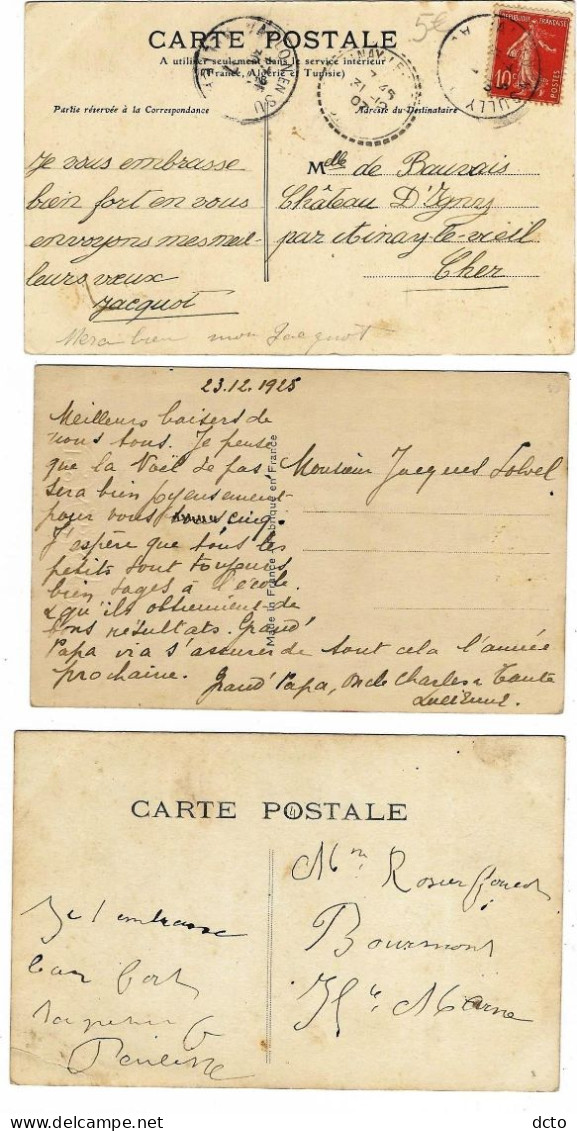 5€
CARTE POSTALE
A utiliser seulement dans le service intérieur
(France, Algérie et Tunisie)
Partie réservée à la Correspondance
Adresse du Destinataire
10c
Je vous embrasse
bien fort en vous
envoyons mes meil-
leurs vœux
Jacquot
Merci bien mon Jacquot
Melle de Bauvais
Château D'Ignoy
par Ainay-le-vieil
Cher
23.12.1925
Meilleurs baisers de
nous tous. Je pense
que la Noël de
sera bien joyeusement
pour vous cinq.
J'espère que tous les
petits sont toujours
bien sages à l'école
& qu'ils obtiennent de
bons résultats. Grand'
Papa ira s'assurer de tout cela l'année
prochaine.
Grand'Papa, Oncle Charles & Tante
Lucienne.
Monsieur Jacques
Made in France Fabriqué en France
CARTE POSTALE
Je t'embrasse
bien fort
Mme Rosier
Bourmont
Hte Marne
dcto